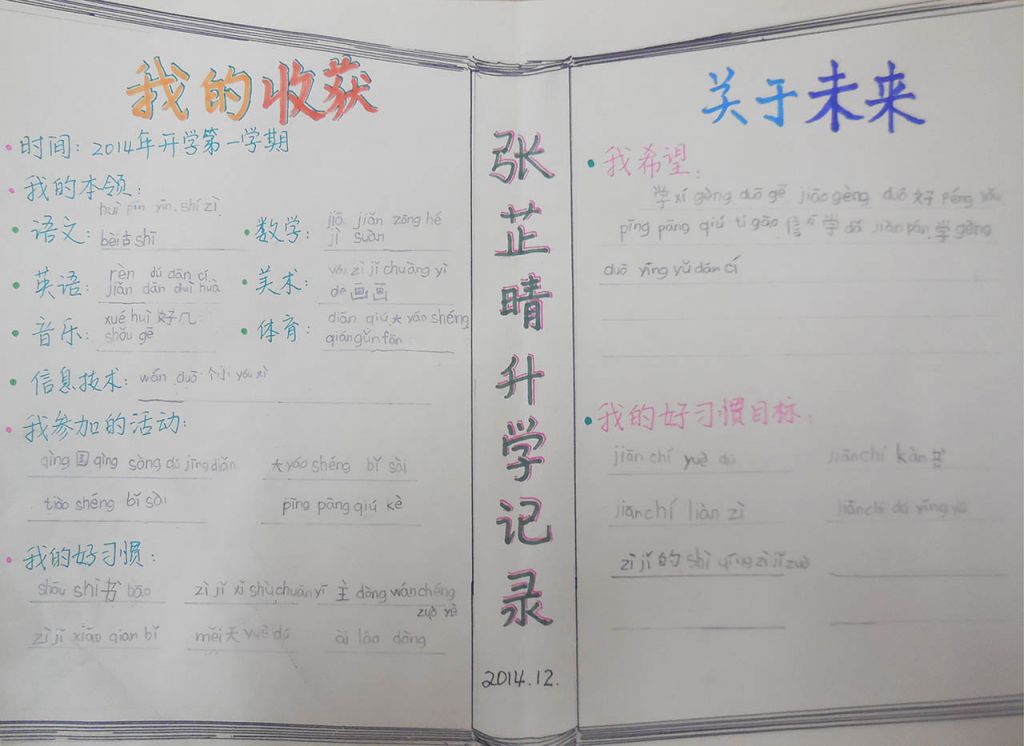 我的收获
时间：2014年开学第一学期
我的本领：
语文： huì pīn yīn. shí zì
bèi古shī
数学： jiā jiǎn zāng hé
jì suàn
英语： rèn dú dān cí
jiǎn dān duì huà
美术： yǒu zì jǐ chuàng yì
dē 画画
音乐： xué huì 好几
shǒu gē
体育： diān qiú 大 yáo shéng
qiángǔnfān
信息技术： wán duō 个小 yóu xì
我参加的活动：
qìng 国 qìng sòng dú jīng diǎn
大 yáo shéng bǐ sài
tiào shéng bǐ sài
pīng pāng qiú kè
我的好习惯：
shōu shi 书 bāo
zì jǐ xǐ shù chuān yī
主 dòng wán chéng
zuò yè
zì jǐ xiāo qian bǐ
měi 天 yuè dú
ài láo dòng
张芷晴升学记录
2014.12.
关于未来
我希望：
学 xí gèng duō gē jiāo gèng duō 好 péng yǒu
pīng pāng qiú tí gāo 学 dǎ jiàn pán 学 gèng
duō yīng yǔ dān cí
我的好习惯目标：
jiān chí yuè dú
jiān chí kàn 书
jiān chí liàn zì
jiān chí dú yīng yǔ
zì jǐ 的 shì qing zì jǐ zuò